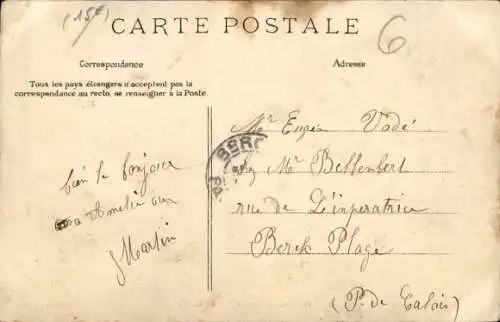 (15€)
6
CARTE POSTALE
Correspondance
Adresse
Tous les pays étrangers n'acceptent pas la
correspondance au recto, se renseigner à la Poste.
Mr Eugin Vadé
chez Mr Bellenbert
rue de L'inperatrice
Berck Plage
(P. de Calais)
bien le bonjour
Amelie aux
J Martin